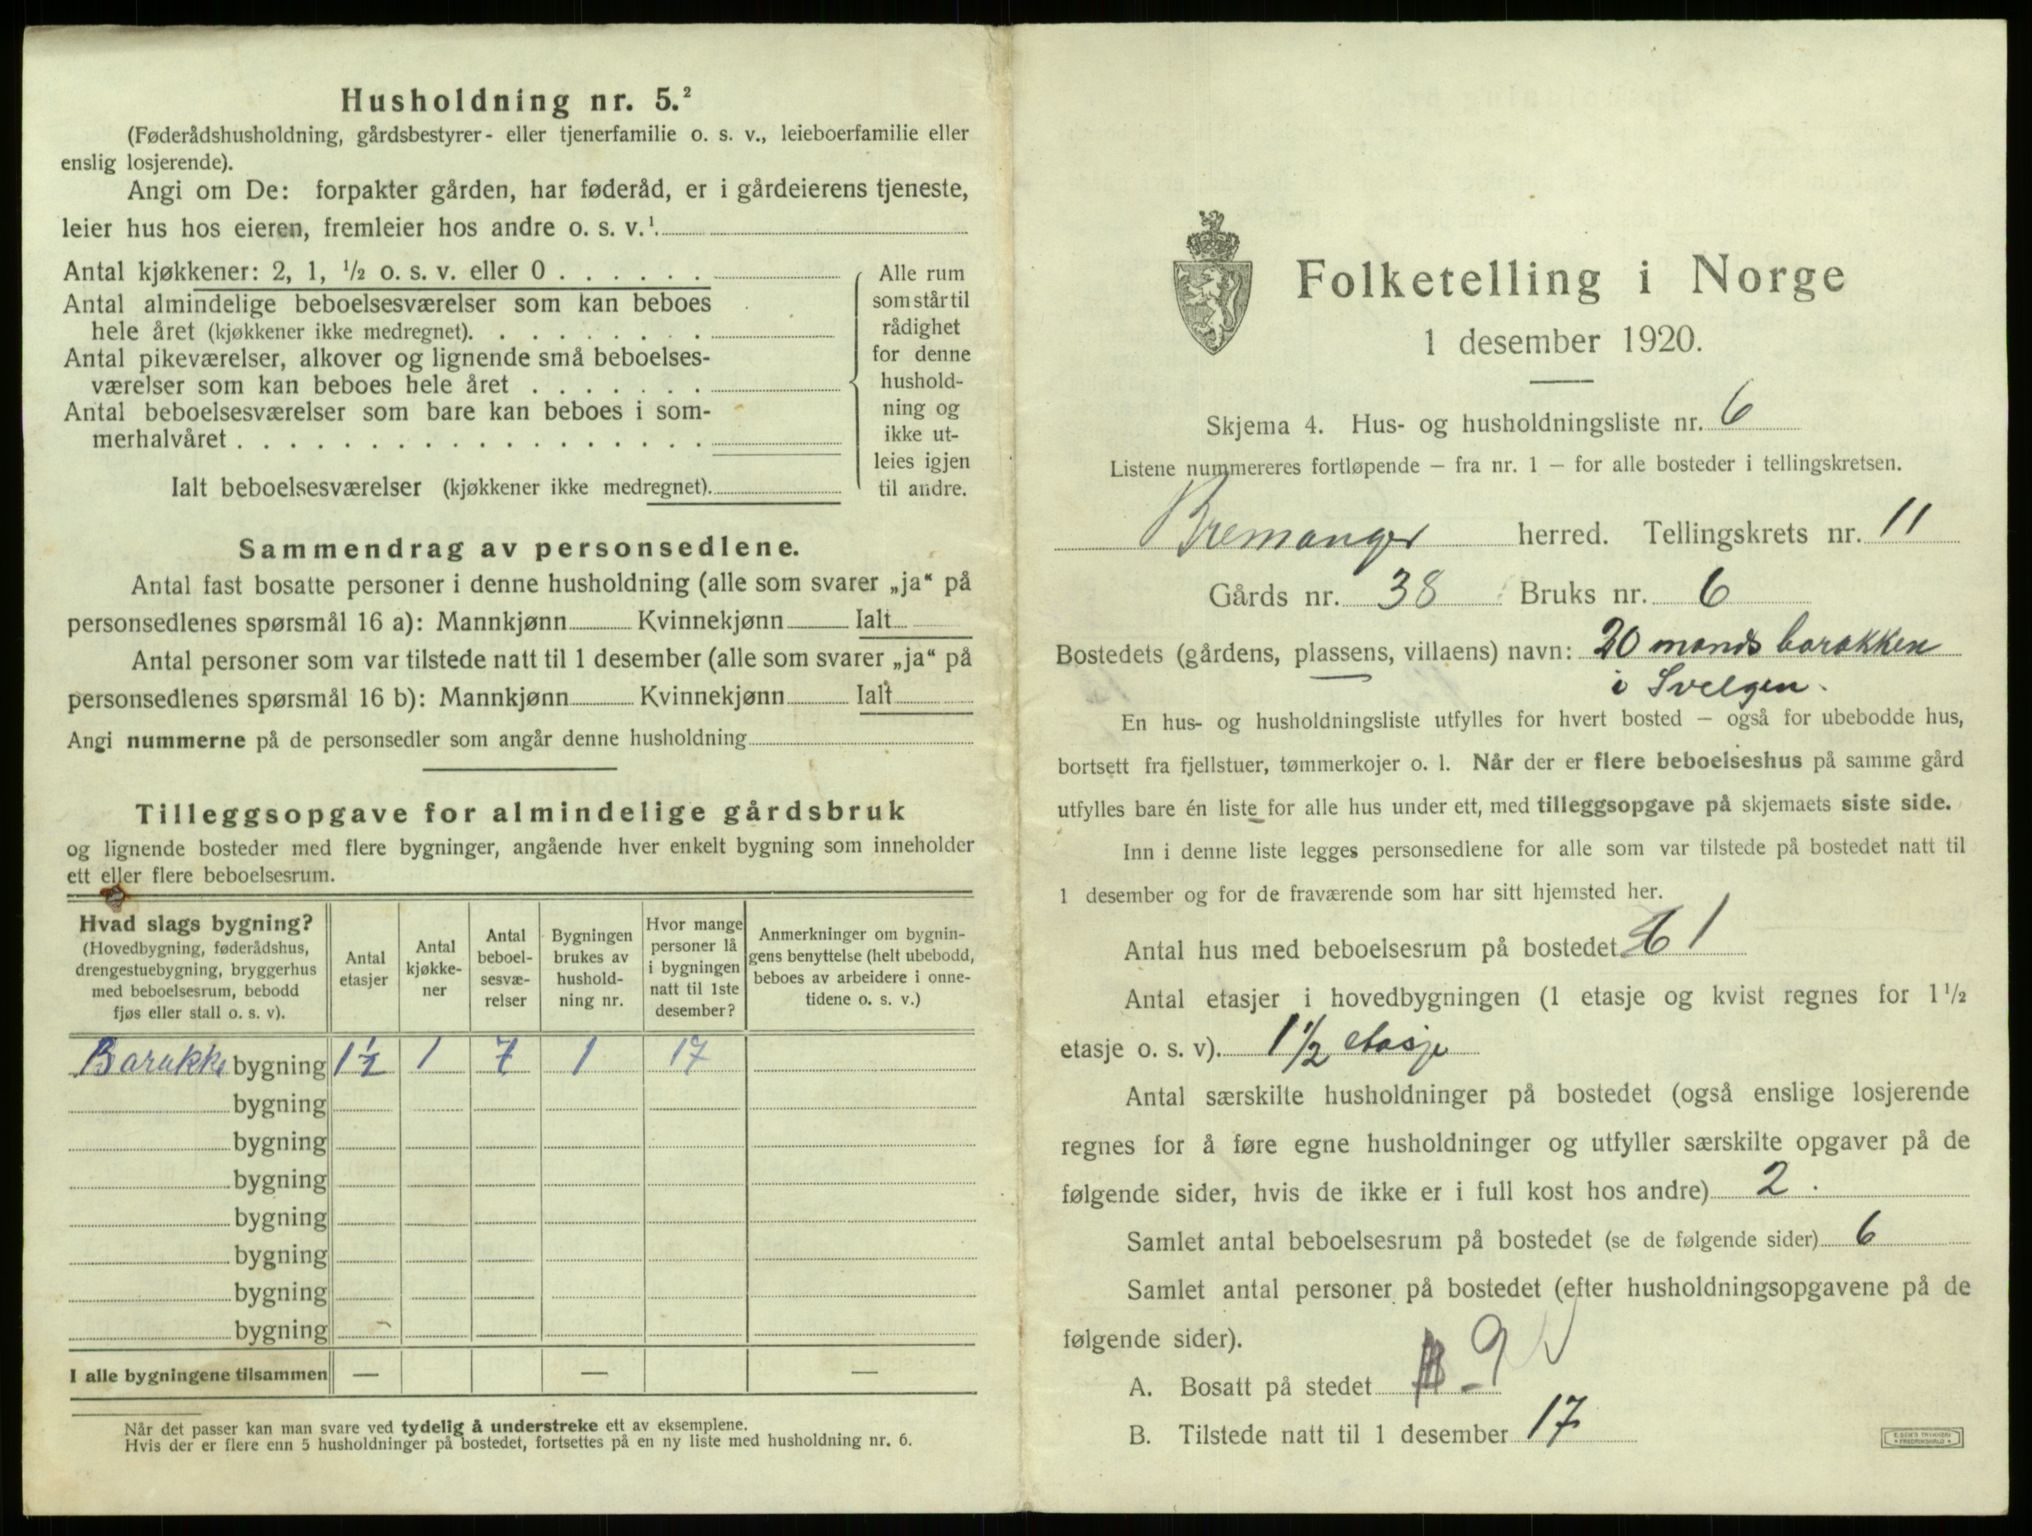 Husholdning nr. 5.²
(Føderådshusholdning, gårdsbestyrer- eller tjenerfamilie o. s. v., leieboerfamilie eller
enslig losjerende).
Angi om De: forpakter gården, har føderåd, er i gårdeierens tjeneste,
leier hus hos eieren, fremleier hos andre o. s. v.¹
Antal kjøkkener: 2, 1, ½ o. s. v. eller 0 . . . . . .
Antal almindelige beboelsesværelser som kan beboes
hele året (kjøkkener ikke medregnet). . . . . . . . .
Antal pikeværelser, alkover og lignende små beboelses-
værelser som kan beboes hele året . . . . . . .
Antal beboelsesværelser som bare kan beboes i som-
merhalvåret . . . . . . . . . . . . . . . . . .
Ialt beboelsesværelser (kjøkkener ikke medregnet).
Alle rum
som står til
rådighet
for denne
hushold-
ning og
ikke ut-
leies igjen
til andre.
Sammendrag av personsedlene.
Antal fast bosatte personer i denne husholdning (alle som svarer „ja“ på
personsedlenes spørsmål 16 a): Mannkjønn Kvinnekjønn Ialt
Antal personer som var tilstede natt til 1 desember (alle som svarer „ja“ på
personsedlenes spørsmål 16 b): Mannkjønn Kvinnekjønn Ialt
Angi nummerne på de personsedler som angår denne husholdning
Tilleggsopgave for almindelige gårdsbruk
og lignende bosteder med flere bygninger, angående hver enkelt bygning som inneholder
ett eller flere beboelsesrum.
Hvad slags bygning?
(Hovedbygning, føderådshus,
drengestuebygning, bryggerhus
med beboelsesrum, bebodd
fjøs eller stall o. s. v).
Antal
etasjer
Antal
kjøkke-
ner
Antal
beboel-
sesvæ-
relser
Bygningen
brukes av
hushold-
ning nr.
Hvor mange
personer lå
i bygningen
natt til 1ste
desember?
Anmerkninger om bygnin-
gens benyttelse (helt ubebodd,
beboes av arbeidere i onne-
tidene o. s. v.)
Barakke bygning 1½ 1 7 1 17
bygning
bygning
bygning
bygning
bygning
bygning
bygning
I alle bygningene tilsammen — — —
Når det passer kan man svare ved tydelig å understreke ett av eksemplene.
Hvis der er flere enn 5 husholdninger på bostedet, fortsettes på en ny liste med husholdning nr. 6.
Folketelling i Norge
1 desember 1920.
Skjema 4. Hus- og husholdningsliste nr. 6
Listene nummereres fortløpende — fra nr. 1 — for alle bosteder i tellingskretsen.
Bremanger herred. Tellingskrets nr. 11
Gårds nr. 38 Bruks nr. 6
Bostedets (gårdens, plassens, villaens) navn: 20 mands barakken
i Svelgen.
En hus- og husholdningsliste utfylles for hvert bosted — også for ubebodde hus,
bortsett fra fjellstuer, tømmerkojer o. l. Når der er flere beboelseshus på samme gård
utfylles bare én liste for alle hus under ett, med tilleggsopgave på skjemaets siste side.
Inn i denne liste legges personsedlene for alle som var tilstede på bostedet natt til
1 desember og for de fraværende som har sitt hjemsted her.
Antal hus med beboelsesrum på bostedet 1
Antal etasjer i hovedbygningen (1 etasje og kvist regnes for 1½
etasje o. s. v). 1½ etasje
Antal særskilte husholdninger på bostedet (også enslige losjerende
regnes for å føre egne husholdninger og utfyller særskilte opgaver på de
følgende sider, hvis de ikke er i full kost hos andre) 2.
Samlet antal beboelsesrum på bostedet (se de følgende sider) 6
Samlet antal personer på bostedet (efter husholdningsopgavene på de
følgende sider).
A. Bosatt på stedet 9
B. Tilstede natt til 1 desember 17